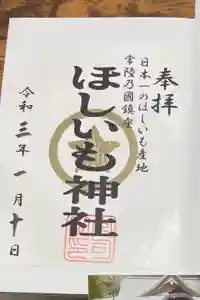 奉拝
日本一のほしいも産地
常陸乃國鎮座
ほしいも神社
令和三年一月十日